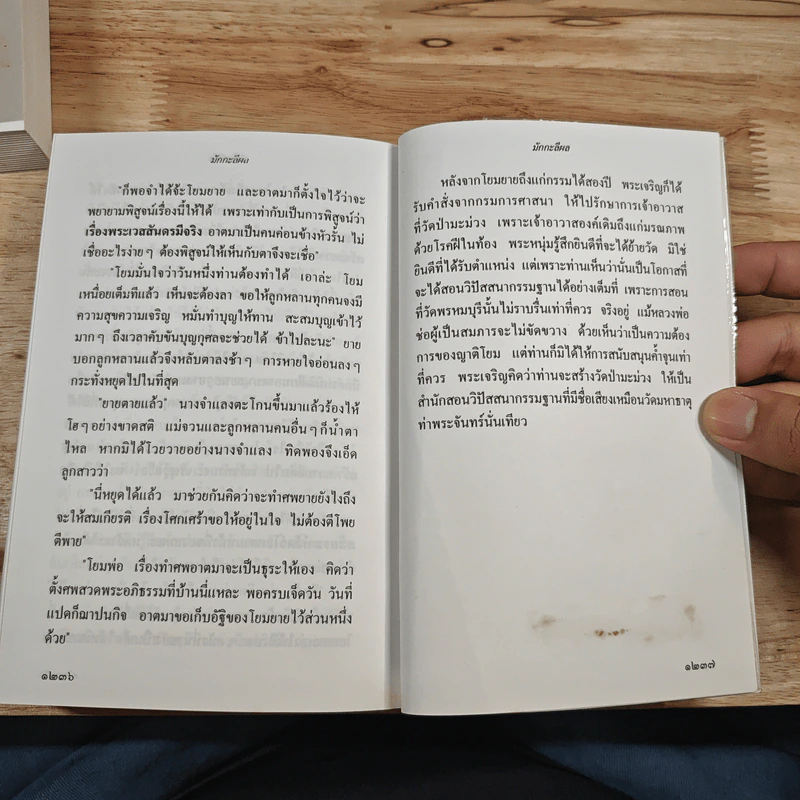 มักกะลีผล
"ก็พอจำได้จ้ะโยมยาย และอาตมาก็ตั้งใจไว้ว่าจะ
พยายามพิสูจน์เรื่องนี้ให้ได้ เพราะเท่ากับเป็นการพิสูจน์ว่า
เรื่องพระเวสสันดรมีจริง อาตมาเป็นคนค่อนข้างหัวรั้น ไม่
เชื่ออะไรง่ายๆ ต้องพิสูจน์ให้เห็นกับตาจึงจะเชื่อ"
"โยมมั่นใจว่าวันหนึ่งท่านต้องทำได้ เอาล่ะ โยม
เหนื่อยเต็มทีแล้ว เห็นจะต้องลา ขอให้ลูกหลานทุกคนจงมี
ความสุขความเจริญ หมั่นทำบุญให้ทาน สะสมบุญเข้าไว้
มากๆ ถึงเวลาคับขันบุญกุศลจะช่วยได้ ข้าไปละนะ" ยาย
บอกลูกหลานแล้วจึงหลับตาลงช้าๆ การหายใจอ่อนลงๆ
กระทั่งหยุดไปในที่สุด
"ยายตายแล้ว" นางจำแลงตะโกนขึ้นมาแล้วร้องไห้
โฮๆอย่างขาดสติ แม่จวนและลูกหลานคนอื่นๆก็น้ำตา
ไหล หากมิได้โวยวายอย่างนางจำแลง ทิดพองจึงเอ็ด
ลูกสาวว่า
"นี่หยุดได้แล้ว มาช่วยกันคิดว่าจะทำศพยายยังไงถึง
จะให้สมเกียรติ เรื่องโศกเศร้าขอให้อยู่ในใจ ไม่ต้องตีโพย
ตีพาย"
"โยมพ่อ เรื่องทำศพอาตมาจะเป็นธุระให้เอง คิดว่า
ตั้งศพสวดพระอภิธรรมที่บ้านนี่แหละ พอครบเจ็ดวัน วันที่
แปดก็ฌาปนกิจ อาตมาขอเก็บอัฐิของโยมยายไว้ส่วนหนึ่ง
ด้วย"
๑๒๓๖
มักกะลีผล
หลังจากโยมยายถึงแก่กรรมได้สองปี พระเจริญก็ได้
รับคำสั่งจากกรมการศาสนา ให้ไปรักษาการเจ้าอาวาส
ที่วัดป่ามะม่วง เพราะเจ้าอาวาสองค์เดิมถึงแก่มรณภาพ
ด้วยโรคฝีในท้อง พระหนุ่มรู้สึกยินดีที่จะได้ย้ายวัด มิใช่
ยินดีที่ได้รับตำแหน่ง แต่เพราะท่านเห็นว่านั่นเป็นโอกาสที่
จะได้สอนวิปัสสนากรรมฐานได้อย่างเต็มที่ เพราะการสอน
ที่วัดพรหมบุรีนั้นไม่ราบรื่นเท่าที่ควร จริงอยู่ แม้หลวงพ่อ
ช่อผู้เป็นสมภารจะไม่ขัดขวาง ด้วยเห็นว่าเป็นความต้อง
การของญาติโยม แต่ท่านก็มิได้ให้การสนับสนุนค้ำจุนเท่า
ที่ควร พระเจริญคิดว่าท่านจะสร้างวัดป่ามะม่วง ให้เป็น
สำนักสอนวิปัสสนากรรมฐานที่มีชื่อเสียงเหมือนวัดมหาธาตุ
ท่าพระจันทร์นั่นเทียว
๑๒๓๗